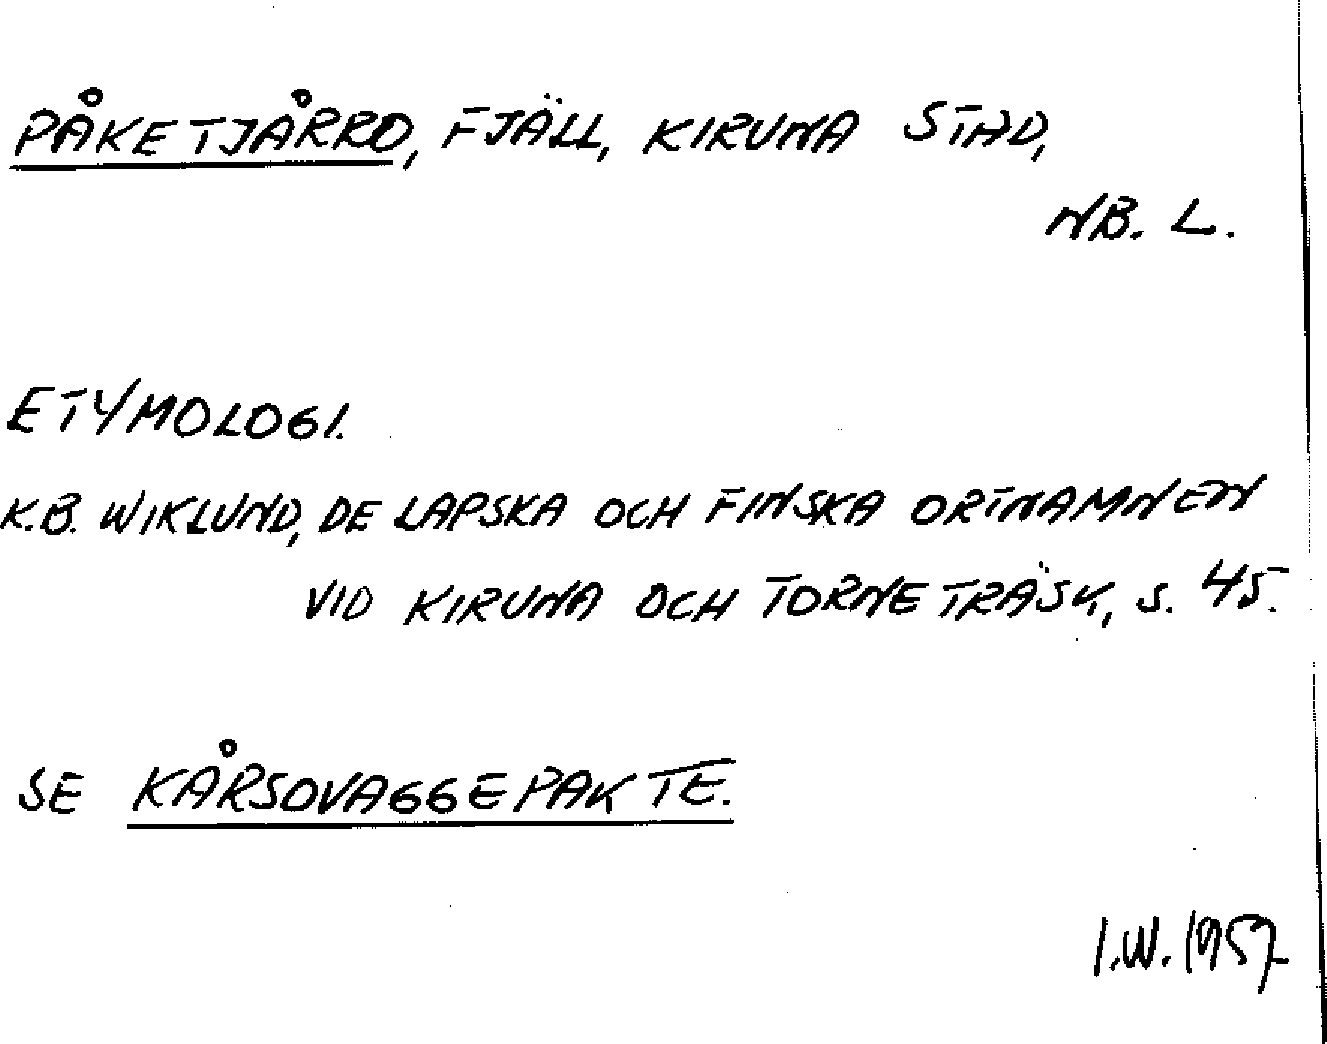 PÅKETJÅRRO, FJÄLL, KIRUNA STAD,
NB. L.
ETYMOLOGI.
K.B. WIKLUND, DE LAPSKA OCH FINSKA ORTNAMNEN
VID KIRUNA OCH TORNETRÄSK, S. 45.
SE KÅRSOVAGGEPAKTE.
I.W. 1957